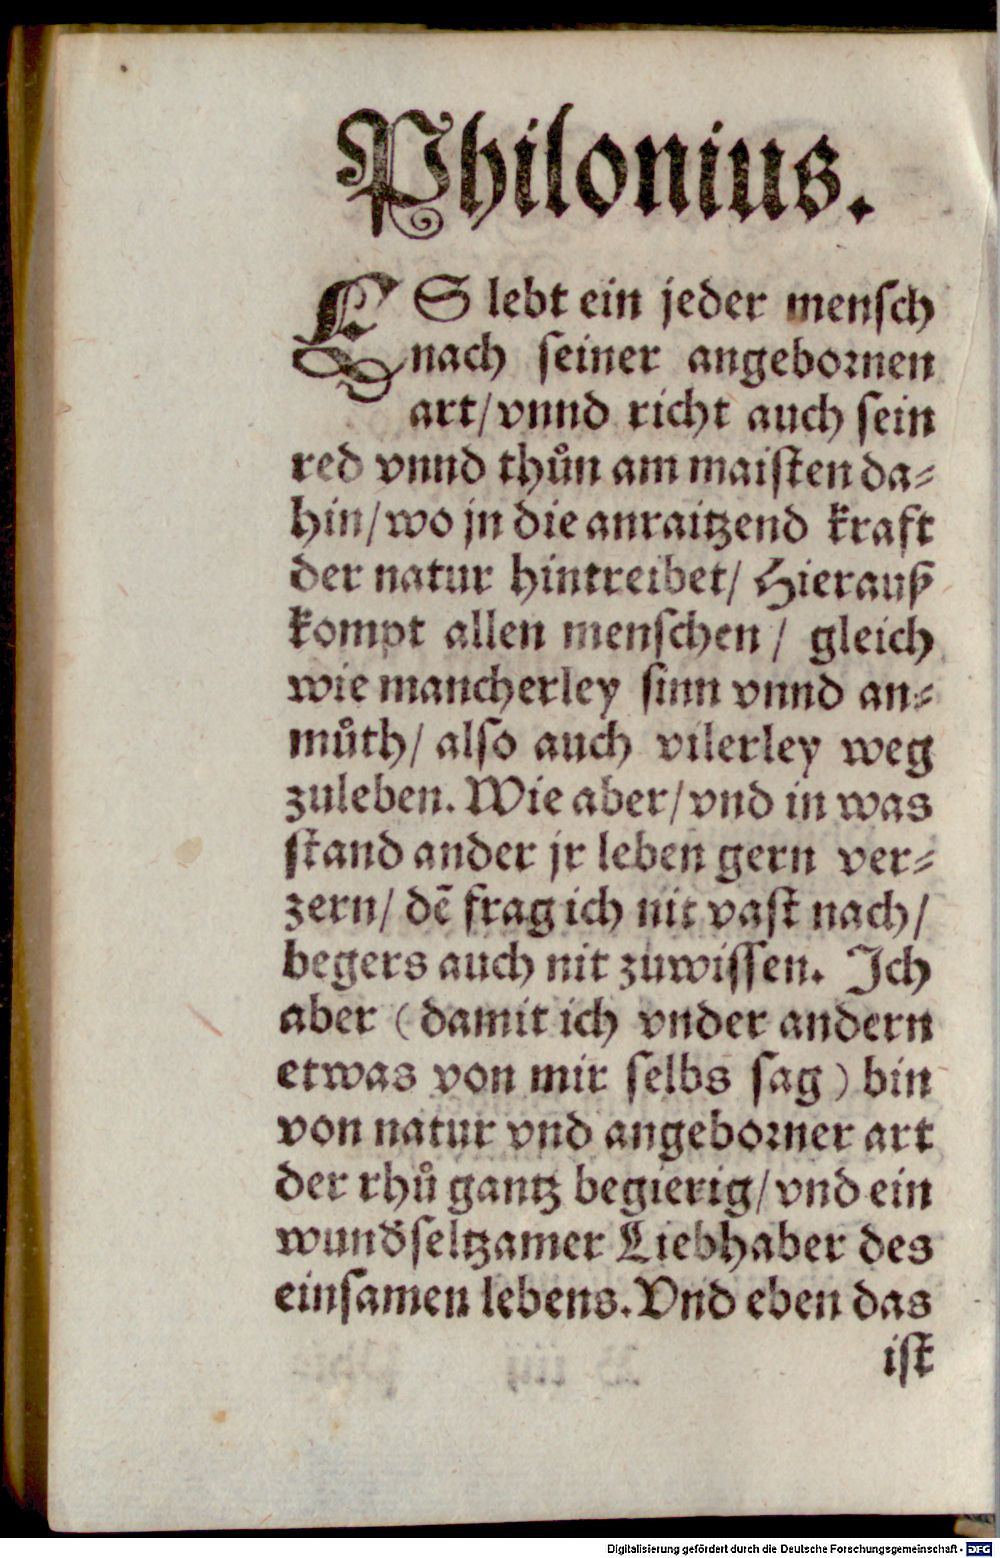 Philonius.
ES lebt ein jeder mensch
nach seiner angebornen
art/ vnnd richt auch sein
red vnnd thůn am maisten da-
hin/ wo jn die anraitzend kraft
der natur hintreibet/ Hierauß
kompt allen menschen/ gleich
wie mancherley sinn vnnd an-
můth/ also auch vilerley weg
zuleben. Wie aber/ vnd in was
stand ander jr leben gern ver-
zern/ dẽ frag ich nit vast nach/
begers auch nit zuwissen. Ich
aber (damit ich vnder andern
etwas von mir selbs sag) bin
von natur vnd angeborner art
der rhů gantz begierig/ vnd ein
wund̃seltzamer Liebhaber des
einsamen lebens. Vnd eben das
ist
Digitalisierung gefördert durch die Deutsche Forschungsgemeinschaft - DFG